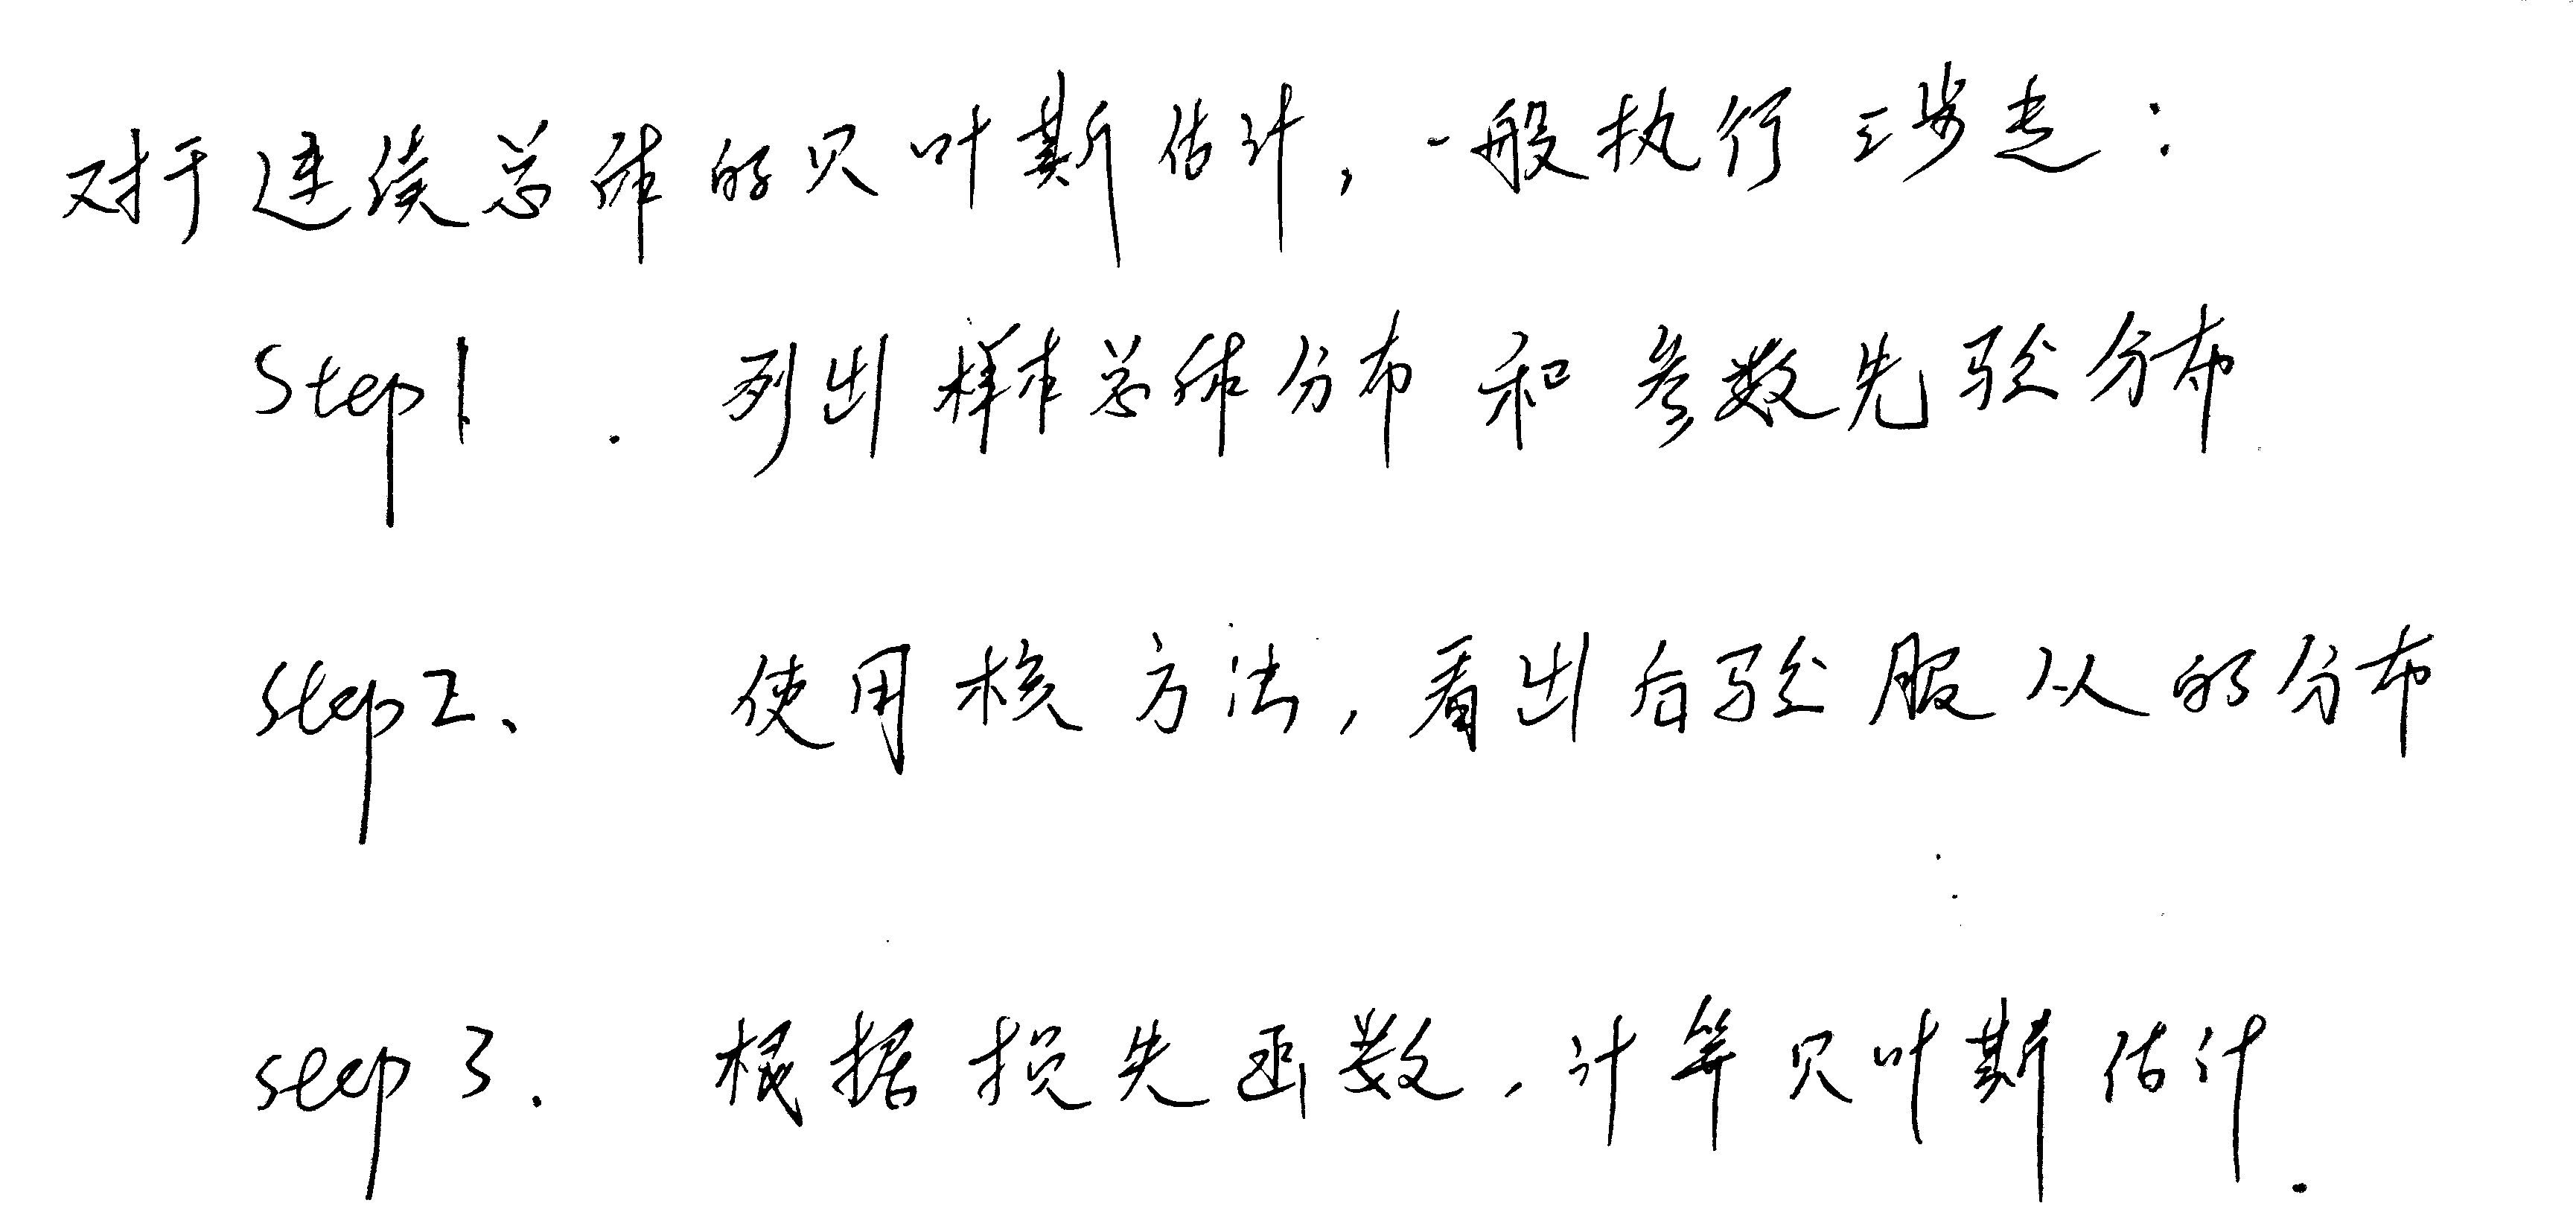 对于连续总体的贝叶斯估计，一般执行三步走：
Step1. 列出样本总体分布和参数先验分布
Step2、使用核方法，看出后验服从的分布
Step 3. 根据损失函数，计算贝叶斯估计.